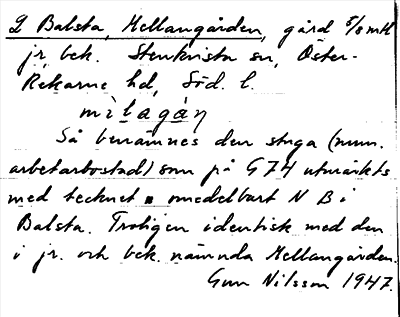 L Balsta, Mellangården, gård 5/8 mtl
jr, bek. Stenkvista sn, Öster-
Rekarne hd, Söd. l.
mìlagàṇ
Så benämnes den stuga (num.
arbetarbostad) som på G74 utmärkts
med tecknet ▪ omedelbart N B i
Balsta. Troligen identisk med den
i jr. och bek. nämnda Mellangården.
Gun Nilsson 1947.